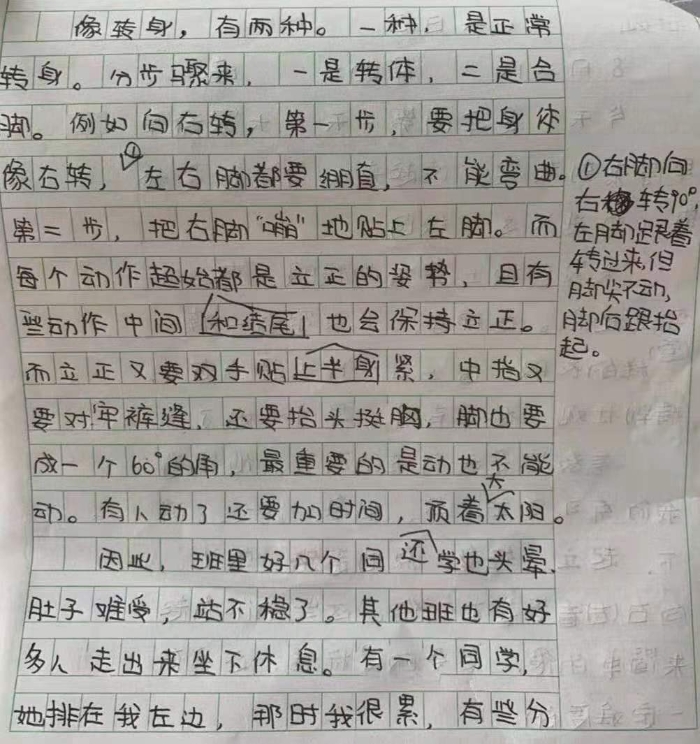 像转身，有两种。一种，是正常
转身。分步骤来，一是转体，二是合
脚。例如向右转，第一步，要把身体
像右转，①左右脚都要绷直，不能弯曲。
第二步，把右脚“嘣”地贴上左脚。而
每个动作起始都是立正的姿势，且有
些动作中间和结尾也会保持立正。
而立正又要双手贴上半身紧，中指又
要对牢裤缝，还要抬头挺胸，脚也要
成一个60°的角，最重要的是动也不能
动。有人动了还要加时间，顶着大太阳。
因此，班里好几个同还学也头晕，
肚子难受，站不稳了。其他班也有好
多人走出来坐下休息。有一个同学，
她排在我左边，那时我很累，有些分
①右脚向
右转90°，
左脚跟着
转过来，但
脚尖不动，
脚后跟抬
起。